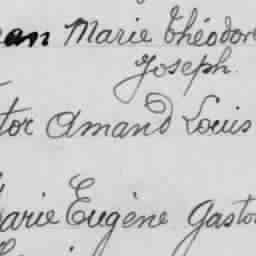 ean Marie Théodore
Joseph.
tor Amand Louis
arie Eugène Gasto